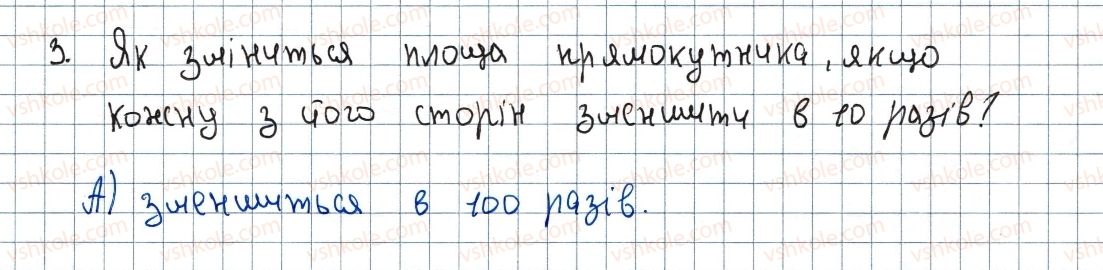 3. Як зміниться площа прямокутника, якщо
кожну з його сторін зменшити в 10 разів?
А) зменшиться в 100 разів.